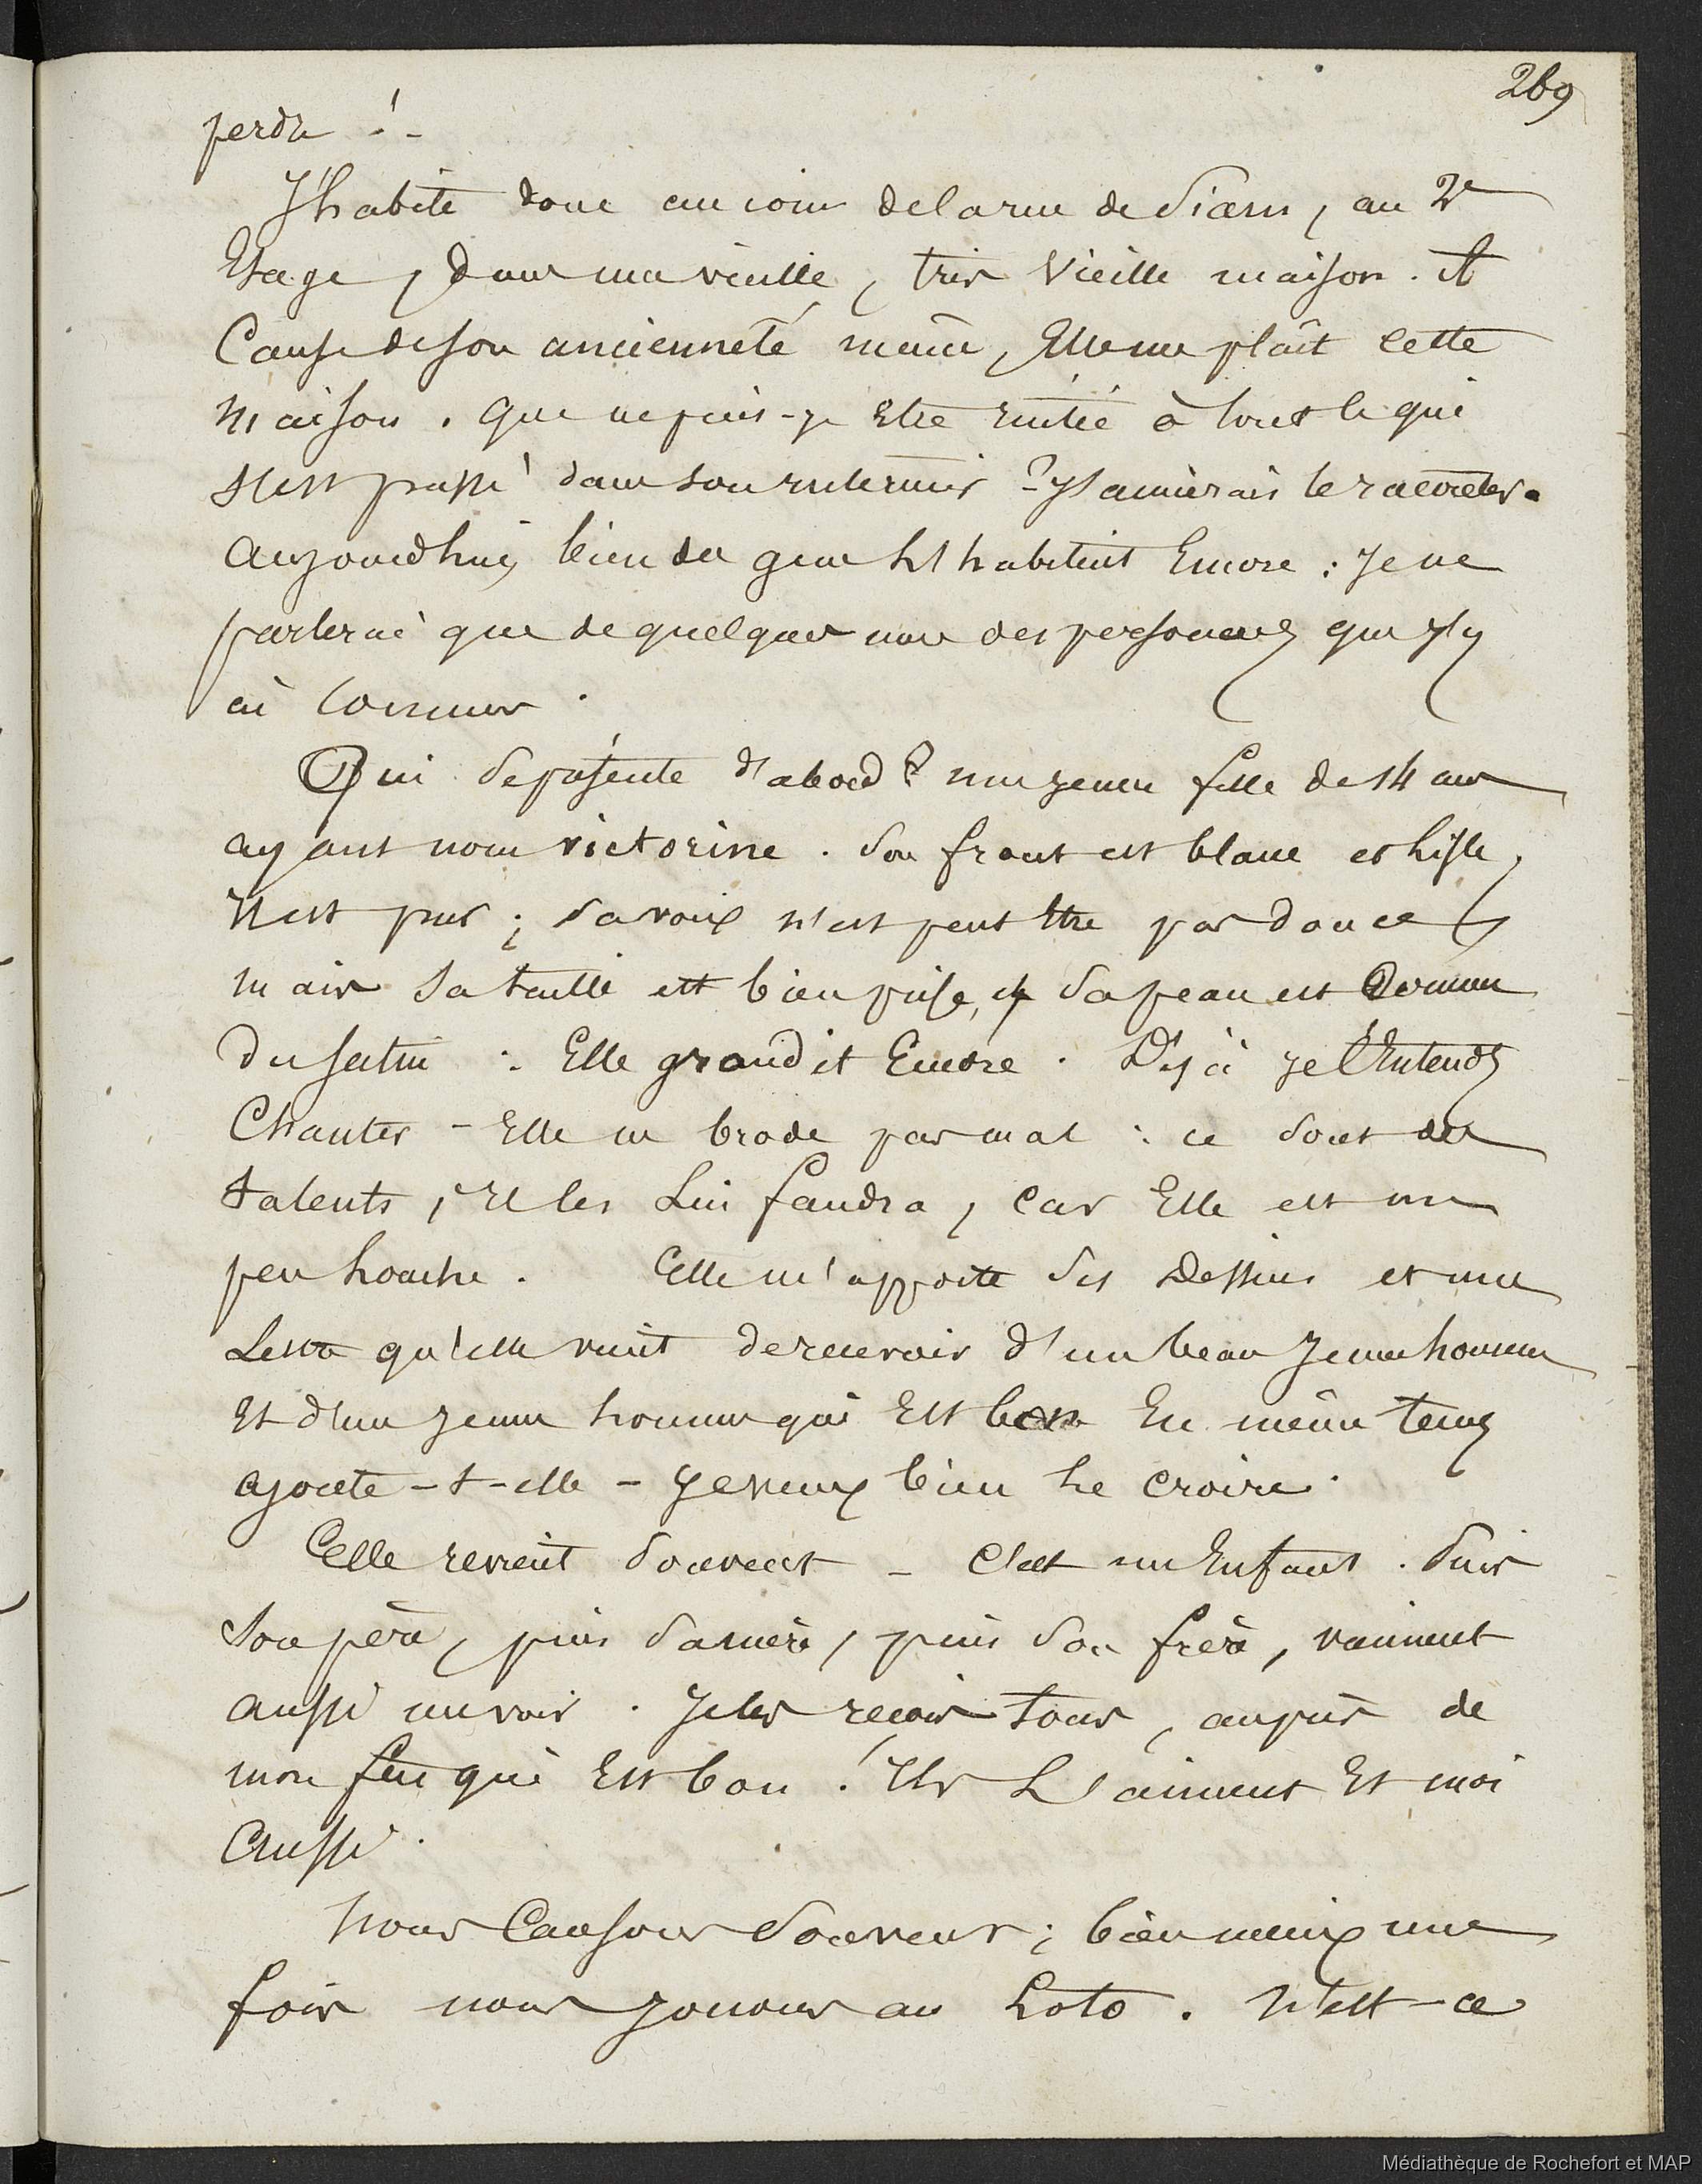 269
perdu !-
J'habite donc au coin de la rue de Siam, au 2e
Etage, dans ma vieille, très vieille maison. A
Cause de son ancienneté même, Elle me plâit cette
maison. Que ne puis-je Etre initié à tout ce qui
s'est passé dans son intérieur ? J'aimerais le raconter.
Aujourd'hui, bien des gens L'habitent Encore : je ne
parlerai que de quelques uns des personnes que j'y
ai connues.
Qui se présente d'abord ? une jeune fille de 14 ans
ayant nom victorine. Son front est blanc et lisse,
N'est pur ; sa voix n'est peut être pas douce
mais sa taille est bien prise, et sa peau est Comme
du satin : Elle grandit Encore. Déjà je l'Entends
Chanter - Elle ne brode pas mal : ce sont des
talents, Il les Lui faudra, car Elle est un
peu louche. Elle m'apporte des Dessins et une
Lettre qu'elle vient de recevoir d'un beau jeune homme
Et d'un jeune homme qui Est bon En même temps
ajoute-t-elle - je veux bien Le croire.
Elle revient souvent - c'est un Enfant. Puis
son père, puis sa mère, puis son frère, viennent
aussi me voir. Je les recois tous, auprès de
mon feu qui Est bon ! Ils L'aiment Et moi
Aussi.
Nous Causons souvent ; bien mieux une
fois nous jouons au Loto. N'est-ce
Médiathèque de Rochefort et MAP